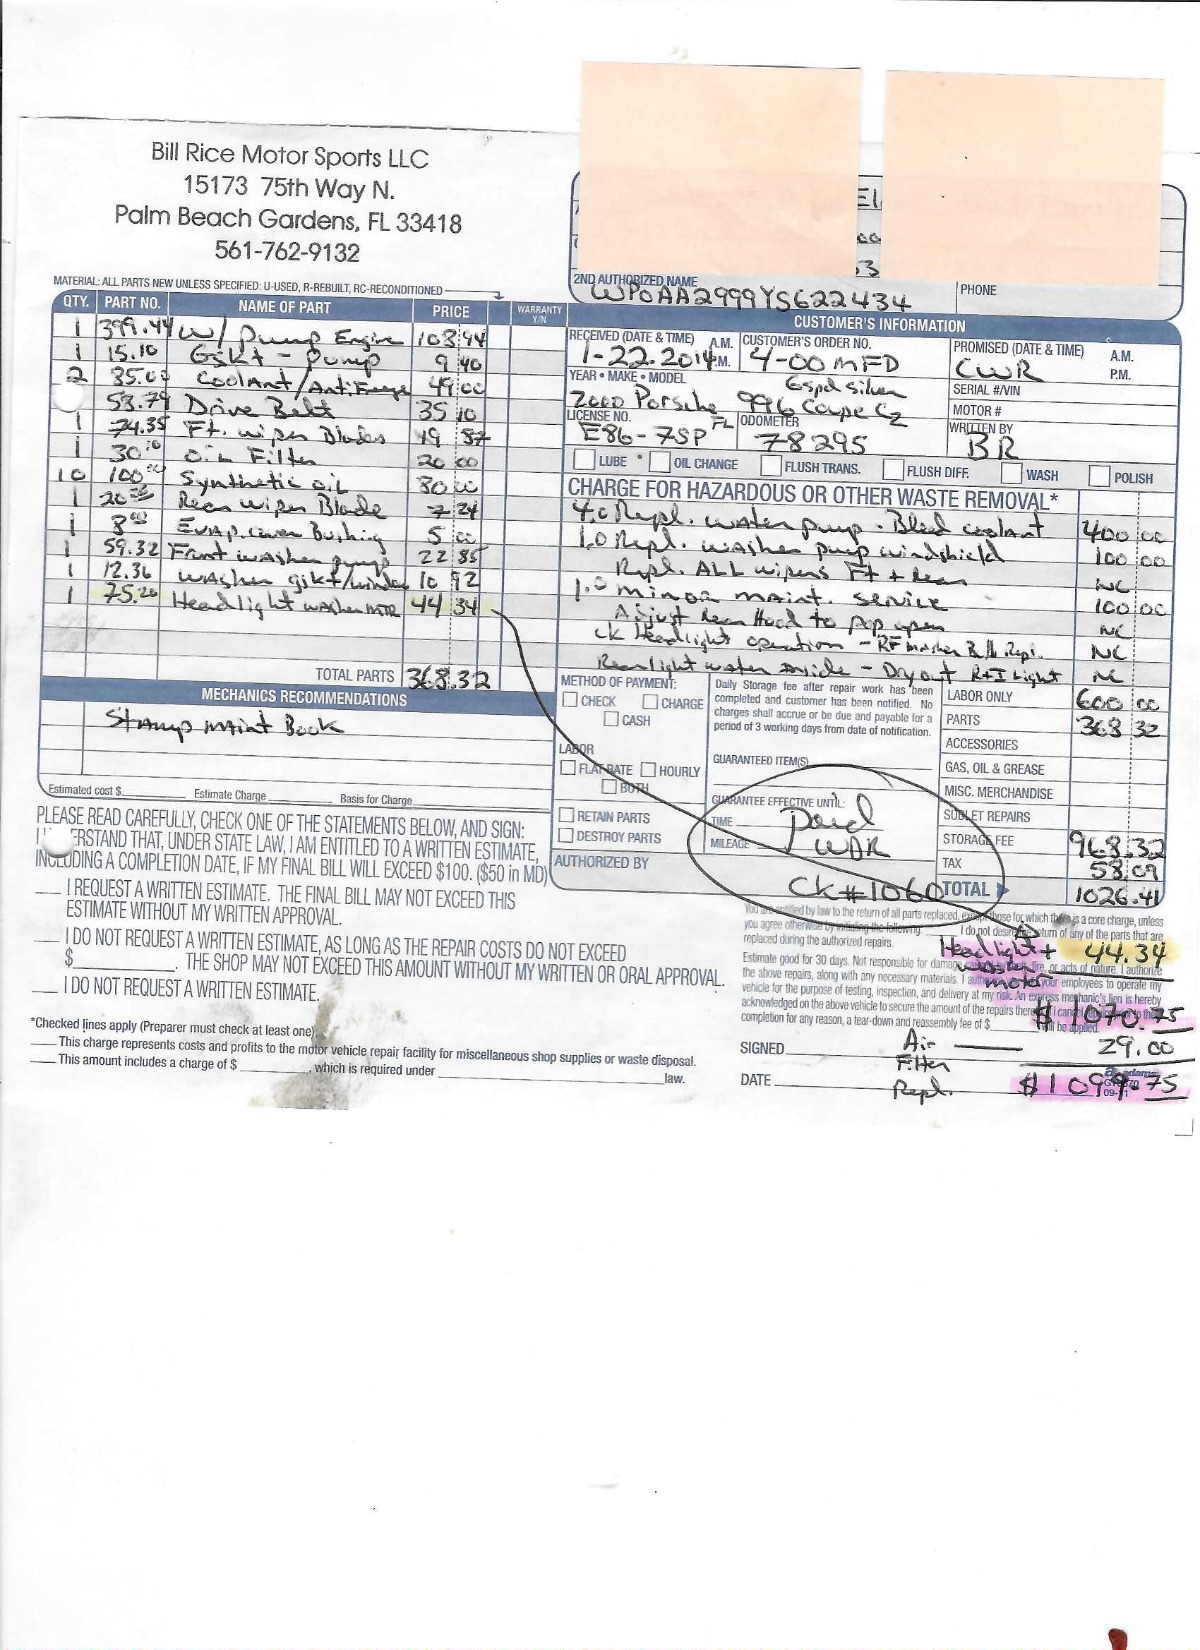 Bill Rice Motor Sports LLC
15173 75th Way N.
Palm Beach Gardens, FL 33418
561-762-9132
MATERIAL: ALL PARTS NEW UNLESS SPECIFIED: U-USED, R-REBUILT, RC-RECONDITIONED
2ND AUTHORIZED NAME
WP0AA2999YS622434
PHONE
QTY. PART NO. NAME OF PART PRICE WARRANTY Y/N
1 399.44 W/Pump Engine 103 44
1 15.10 Gskt - Pump 9 40
2 35.00 Coolant/Antifreeze 49 00
53.79 Drive Belt 35 10
1 74.35 Ft. wiper Blades 49 87
1 30.00 Oil Filter 20 00
10 100.00 Synthetic oil 80 00
1 20 Rear wiper Blade 7 24
1 8.00 Evap. cover Bushing 5 00
1 59.32 Front washer pump 22 85
1 12.36 washer gskt/window 10 92
1 75.20 Headlight washer MTR 44 34
TOTAL PARTS 368.32
MECHANICS RECOMMENDATIONS
Stamp Maint Book
Estimated cost $ Estimate Charge Basis for Charge
CUSTOMER'S INFORMATION
RECEIVED (DATE & TIME) A.M. P.M. 1-22-2014
CUSTOMER'S ORDER NO. 4-00 MFD
PROMISED (DATE & TIME) A.M. P.M. CWR
YEAR • MAKE • MODEL
2000 Porsche 996 Coupe C2
6spd silver
SERIAL #/VIN
LICENSE NO. FL E86-7SP
ODOMETER 78295
MOTOR #
WRITTEN BY BR
LUBE OIL CHANGE FLUSH TRANS. FLUSH DIFF. WASH POLISH
CHARGE FOR HAZARDOUS OR OTHER WASTE REMOVAL*
4.0 Repl. water pump - Bleed coolant 400 00
1.0 Repl. washer pump windshield 100 00
Repl. ALL wipers Ft + Rear NC
1.0 minor maint. service 100 00
Adjust Rear Hood to pop open NC
ck Headlight operation - RF marker Bulb Repl. NC
Rear light water inside - Dry out R+I Light NC
METHOD OF PAYMENT:
CHECK CHARGE
CASH
LABOR
FLAT RATE HOURLY
BOTH
RETAIN PARTS
DESTROY PARTS
AUTHORIZED BY
Daily Storage fee after repair work has been
completed and customer has been notified. No
charges shall accrue or be due and payable for a
period of 3 working days from date of notification.
GUARANTEED ITEM(S)
GUARANTEE EFFECTIVE UNTIL:
TIME
MILEAGE
Paid
CK#1060
LABOR ONLY 600 00
PARTS 368 32
ACCESSORIES
GAS, OIL & GREASE
MISC. MERCHANDISE
SUBLET REPAIRS
STORAGE FEE 968.32
TAX 58.09
TOTAL 1026.41
PLEASE READ CAREFULLY, CHECK ONE OF THE STATEMENTS BELOW, AND SIGN:
ERSTAND THAT, UNDER STATE LAW, I AM ENTITLED TO A WRITTEN ESTIMATE,
INCLUDING A COMPLETION DATE, IF MY FINAL BILL WILL EXCEED $100. ($50 in MD)
I REQUEST A WRITTEN ESTIMATE. THE FINAL BILL MAY NOT EXCEED THIS
ESTIMATE WITHOUT MY WRITTEN APPROVAL.
I DO NOT REQUEST A WRITTEN ESTIMATE, AS LONG AS THE REPAIR COSTS DO NOT EXCEED
$ . THE SHOP MAY NOT EXCEED THIS AMOUNT WITHOUT MY WRITTEN OR ORAL APPROVAL.
I DO NOT REQUEST A WRITTEN ESTIMATE.
*Checked lines apply (Preparer must check at least one)
This charge represents costs and profits to the motor vehicle repair facility for miscellaneous shop supplies or waste disposal.
This amount includes a charge of $ , which is required under law.
You are entitled by law to the return of all parts replaced, except those for which there is a core charge, unless
you agree otherwise by initialing the following: I do not desire return of any of the parts that are
replaced during the authorized repairs.
Estimate good for 30 days. Not responsible for damage fire, or acts of nature. I authorize
the above repairs, along with any necessary materials. I authorize your employees to operate my
vehicle for the purpose of testing, inspection, and delivery at my risk. An express mechanic's lien is hereby
acknowledged on the above vehicle to secure the amount of the repairs
completion for any reason, a tear-down and reassembly fee of $ will be applied.
Headlight + 44.34
washer
motor
$ 1070.75
Air Filter Repl. 29.00
$ 1099.75
SIGNED
DATE
adams